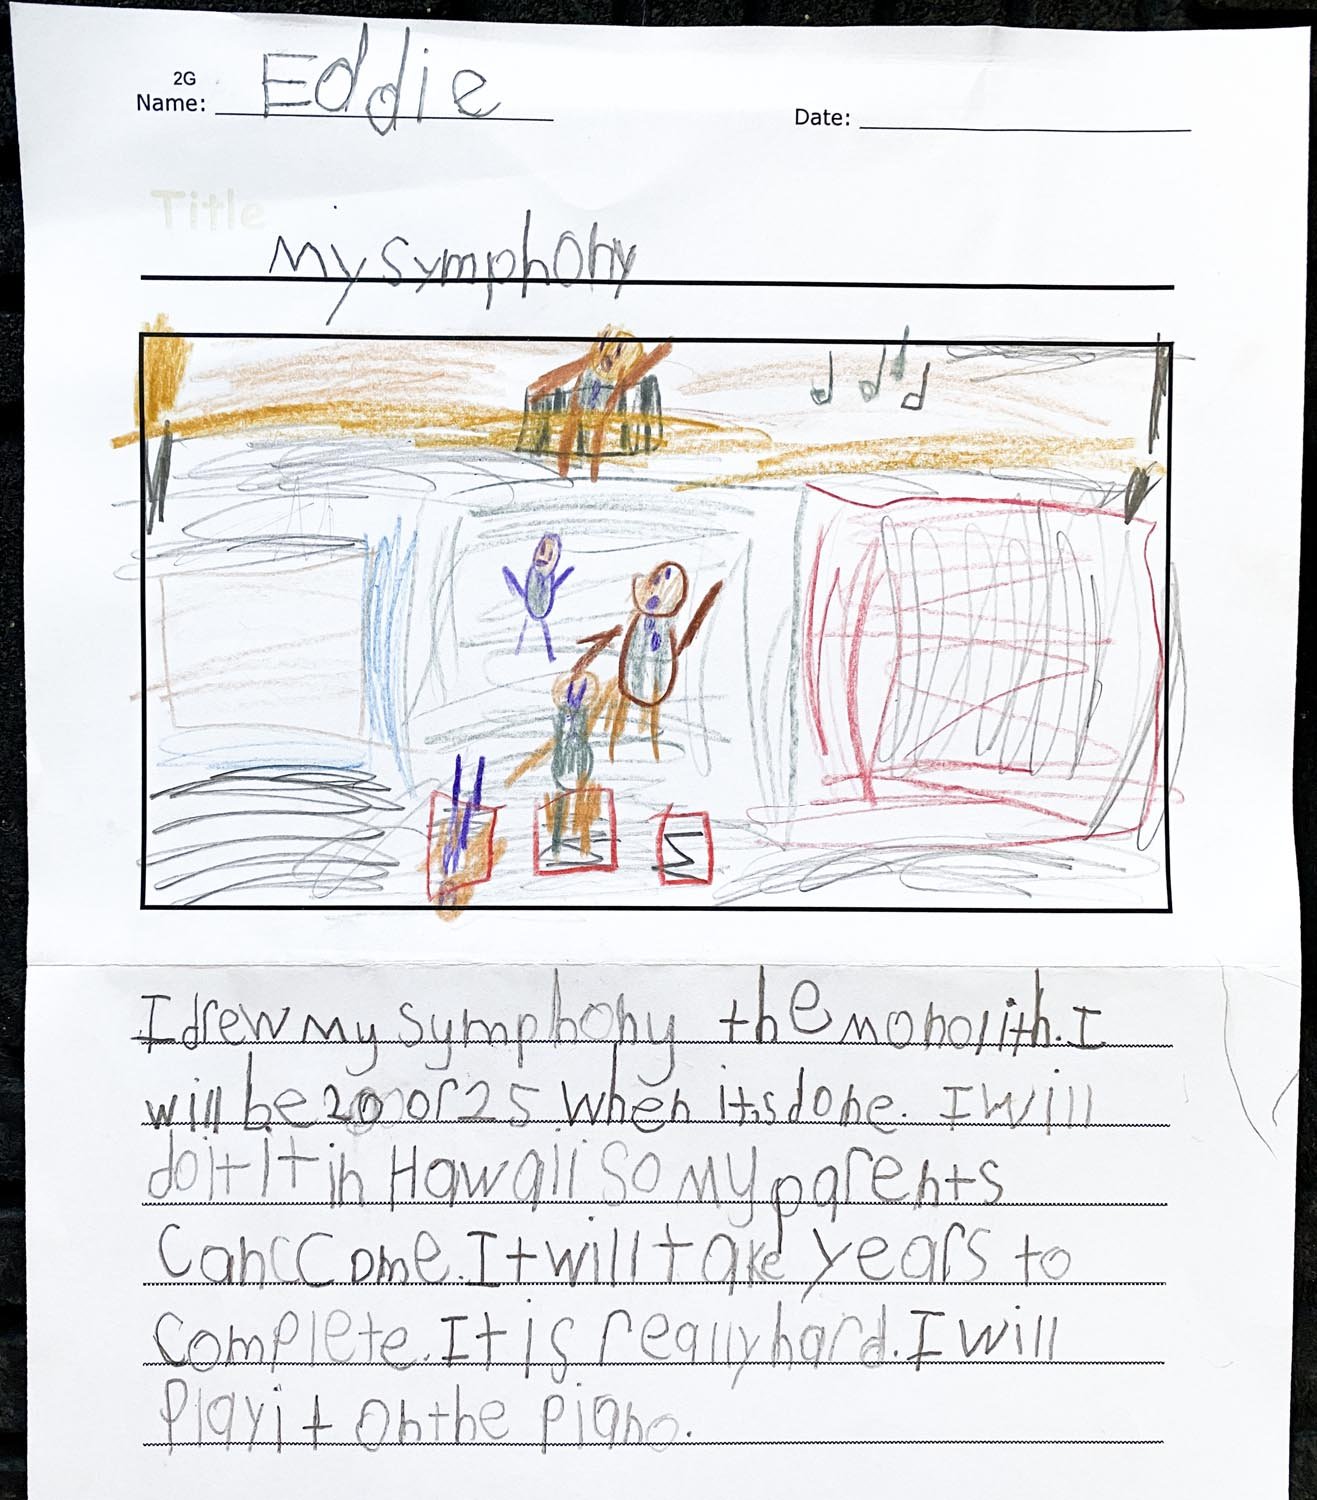 2G
Name: Eddie
Date:
Title
My symphony
I drew my symphony the monolith. I
will be 20 or 25 when its done. I will
do it It in Hawaii so my parents
can come. It will take years to
complete. It is really hard. I will
Play it on the piano.